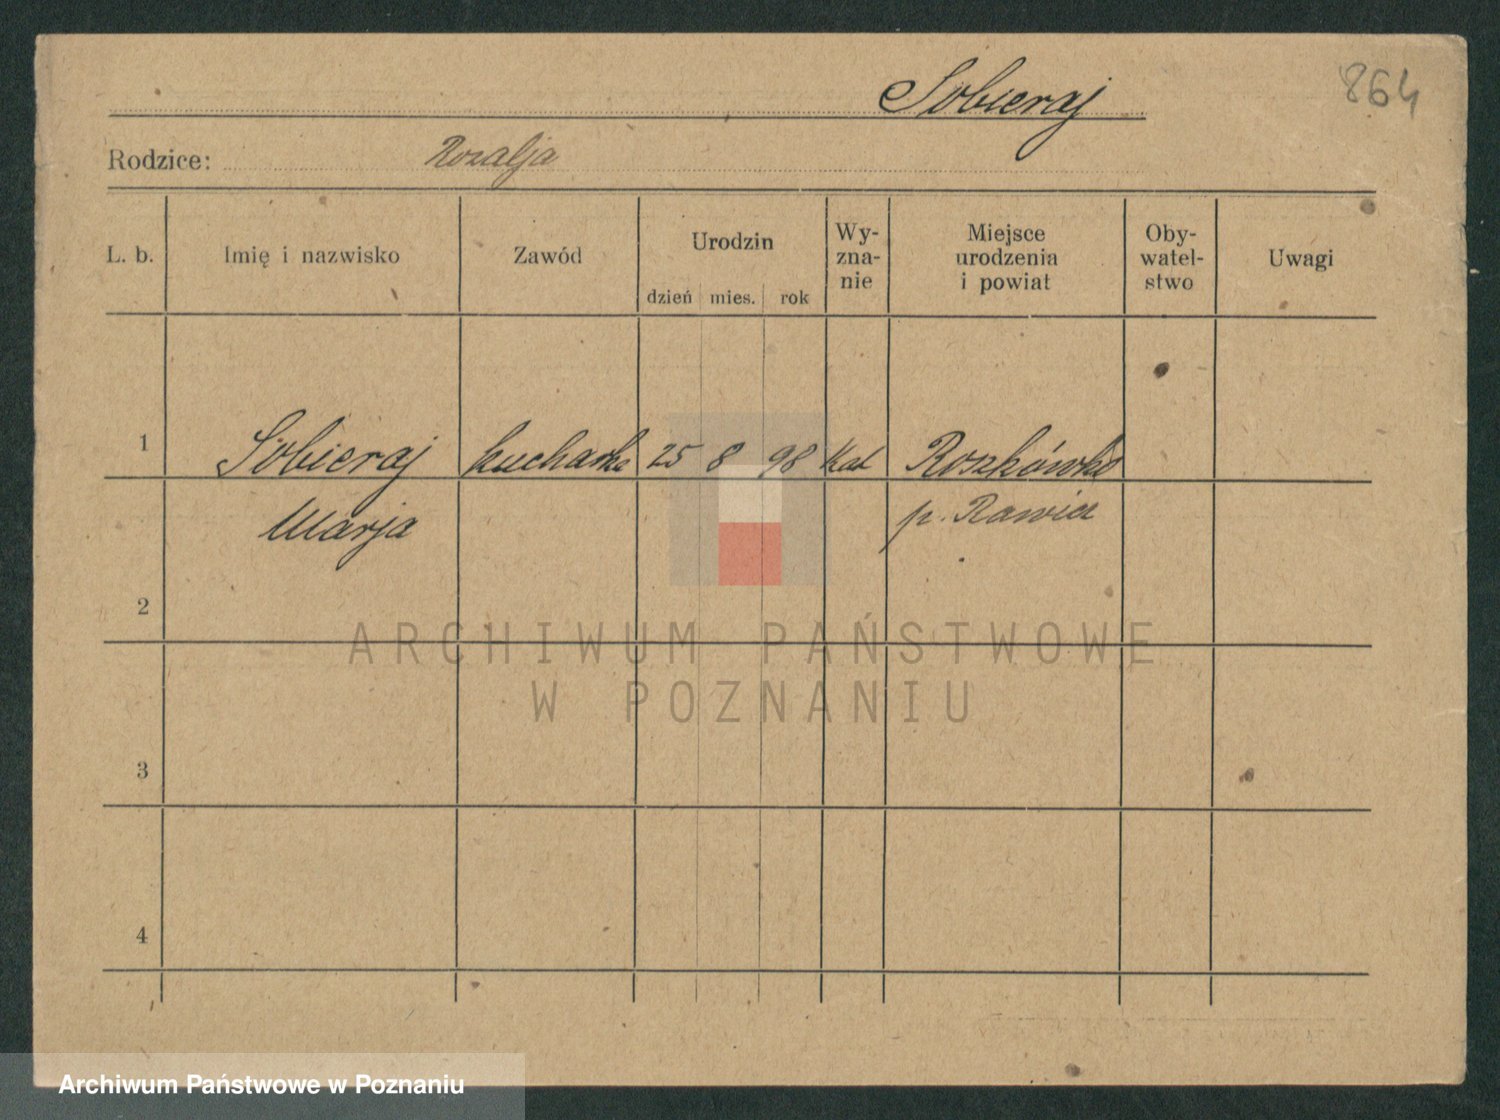 Sobieraj
864
Rodzice: Rozalja
L. b. Imię i nazwisko Zawód Urodzin dzień mies. rok Wy- zna- nie Miejsce urodzenia i powiat Oby- watel- stwo Uwagi
1 Sobieraj kucharka 25 8 98 kat Roszkówko
Marja p. Rawicz
2
ARCHIWUM PAŃSTWOWE
W POZNANIU
3
4
Archiwum Państwowe w Poznaniu